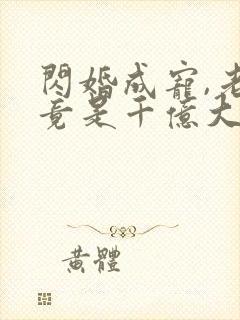 閃婚成寵,老
竟是千億大
黃體